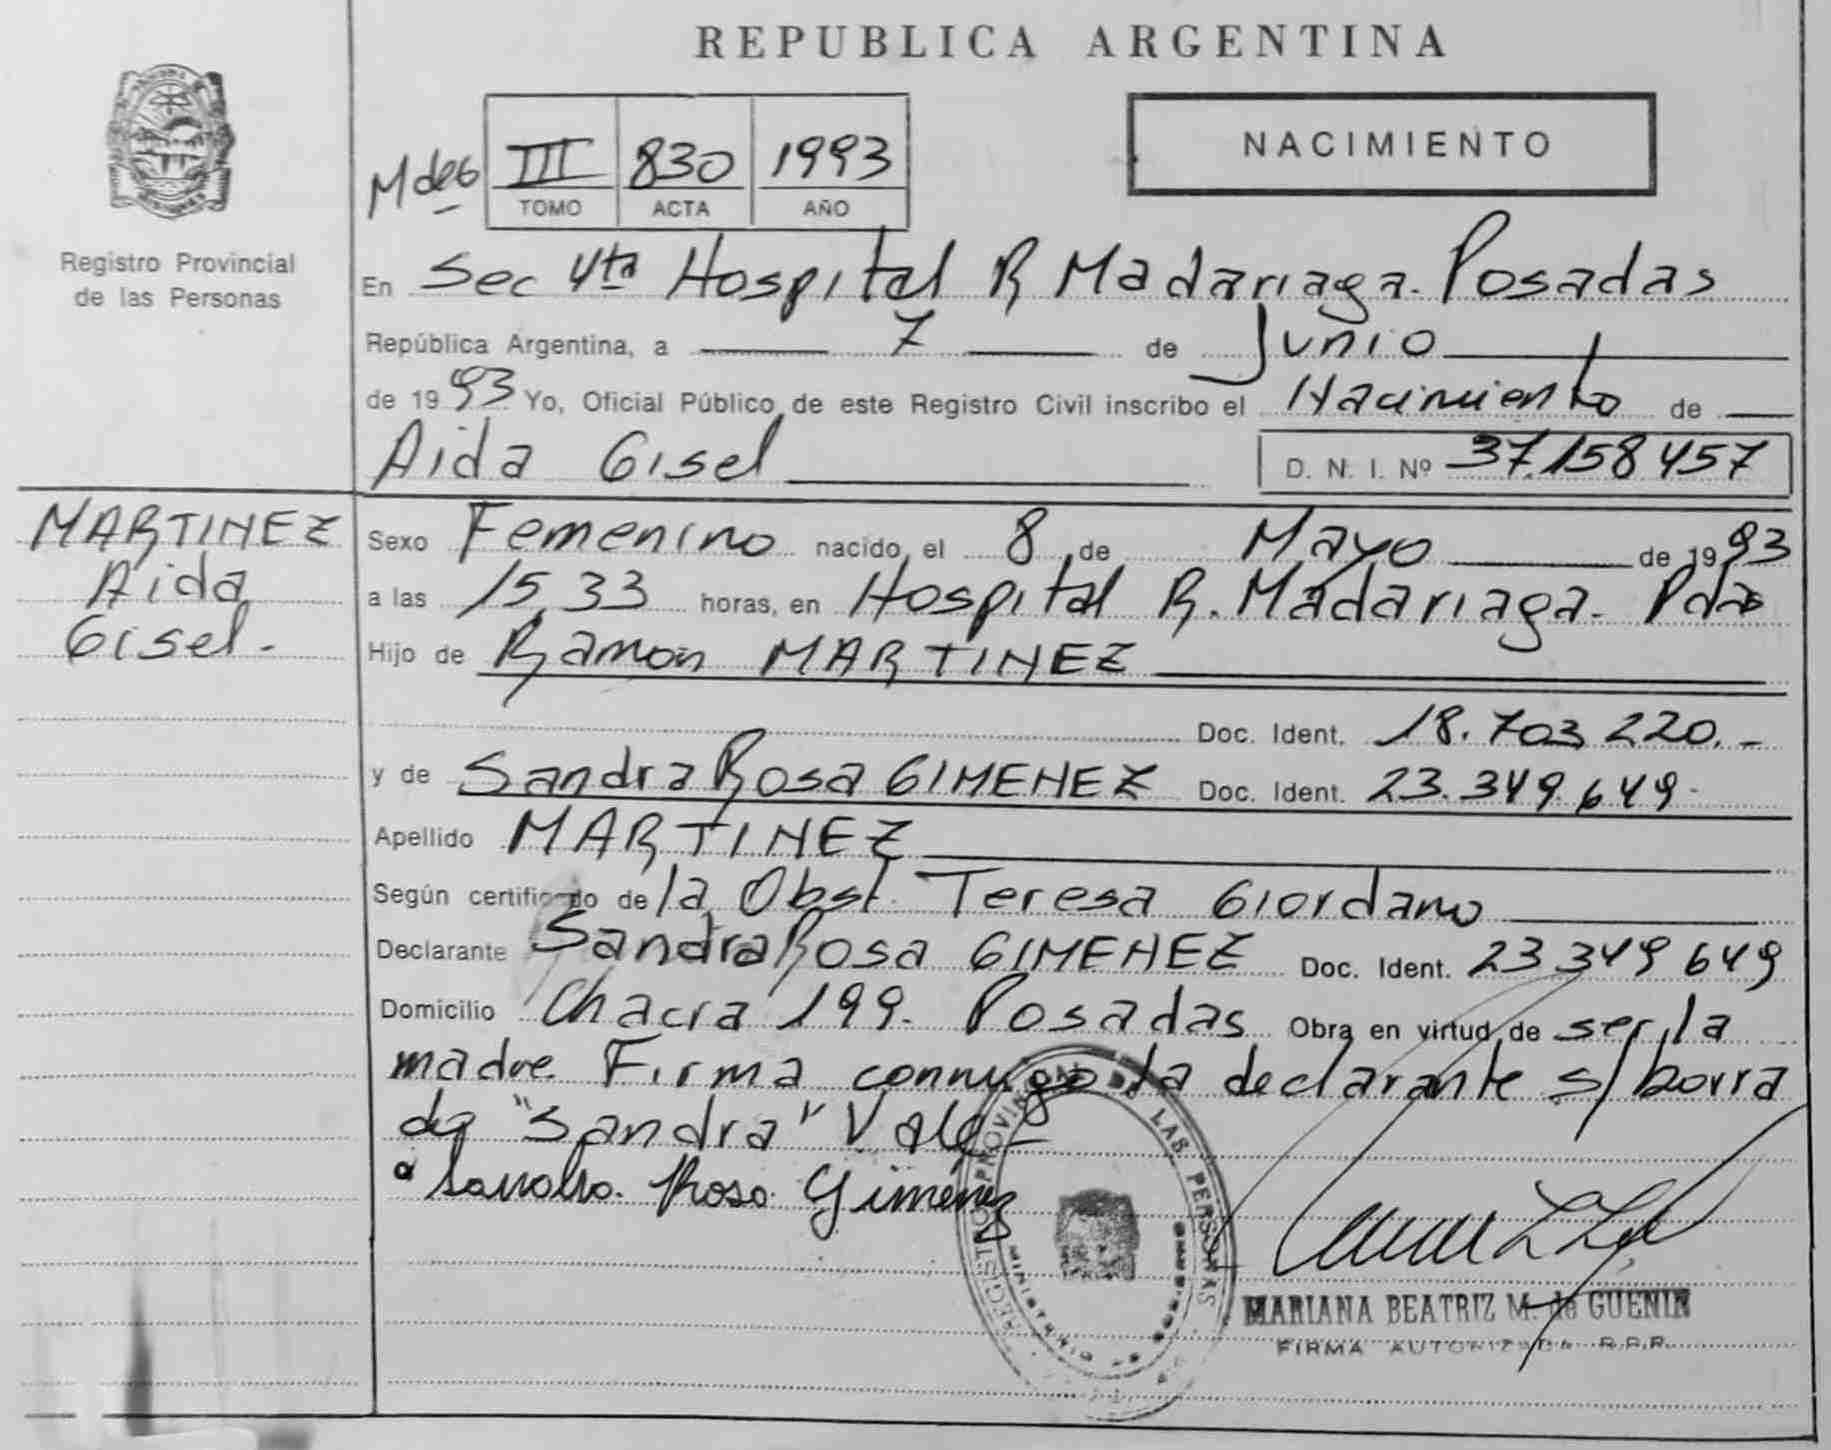 REPUBLICA ARGENTINA
NACIMIENTO
Registro Provincial
de las Personas
III 830 1993
TOMO ACTA AÑO
En Sec 4ta Hospital R Madariaga. Posadas
República Argentina, a 7 de Junio
de 1993 Yo, Oficial Público de este Registro Civil inscribo el Nacimiento de
Aida Gisel
D. N. I. Nº 37.158457
MARTINEZ
Aida
Gisel.-
Sexo Femenino nacido el 8 de Mayo de 1993
a las 15,33 horas, en Hospital R. Madariaga. Pdas
Hijo de Ramon MARTINEZ
Doc. Ident. 18.703.220.-
y de Sandra Rosa GIMENEZ Doc. Ident. 23.349.649-
Apellido MARTINEZ
Según certificado de la Obst. Teresa Giordano
Declarante Sandra Rosa GIMENEZ Doc. Ident. 23349649
Domicilio Chacra 199. Posadas Obra en virtud de ser la
madre. Firma conmigo la declarante s/borra
do "Sandra" Vale-
Rosa Giménez
REGISTRO PROVINCIAL DE LAS PERSONAS
MINISTERIO DE
MARIANA BEATRIZ M. de GUENIN
FIRMA AUTORIZADA R.P.P.